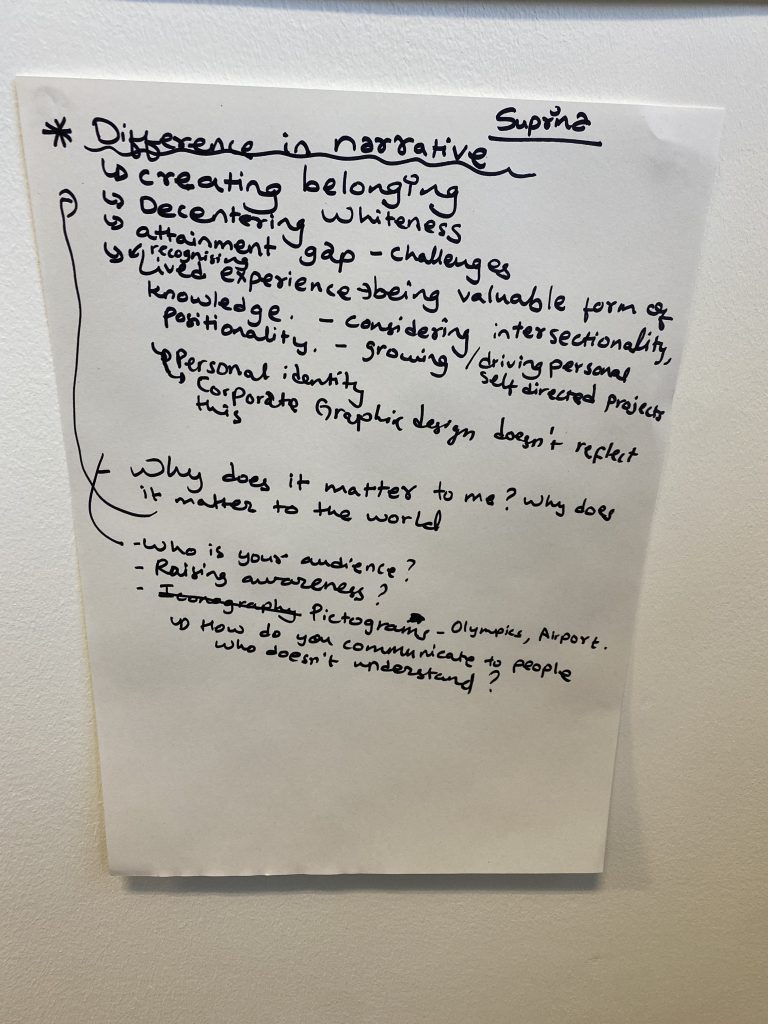 Suprina
* Difference in narrative
↳ creating belonging
↳ Decentering whiteness
↳ attainment gap - challenges
↳ recognising
Lived experience → being valuable form of
knowledge. - considering intersectionality,
positionality. - growing / driving personal
self directed projects
↳ Personal identity
↳ Corporate Graphic design doesn't reflect
this
- Why does it matter to me? Why does
it matter to the world
- Who is your audience?
- Raising awareness?
- Iconography Pictograms - Olympics, Airport.
↳ How do you communicate to people
who doesn't understand?